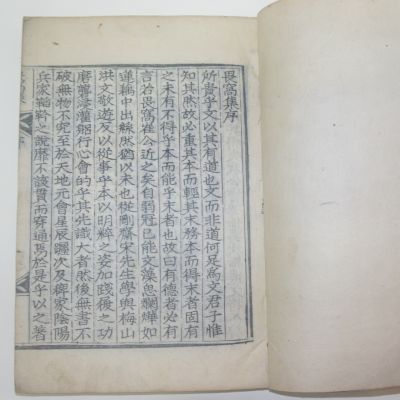 畏窩集序
所貴乎文以其有道也文而非道何足爲文君子惟
知其然故必重其本而輕其末務本而得末者固有
之未有不得乎本而能乎末者也故曰有德者必有
言若畏窩崔公近之矣自弱冠已能文藻思斕燁如
蓮藕中出絲然猶以未也從剛齋宋先生學與梅山
洪文敬遊反以從事乎本以明粹之姿加踐復之功
磨礲浸灌躬行心會的乎其先識大者然後無書不
破無物不究至於天地元會星辰躔次及稗家陰陽
兵家韜鈐之說靡不該貫而穿通焉於是乎以之著